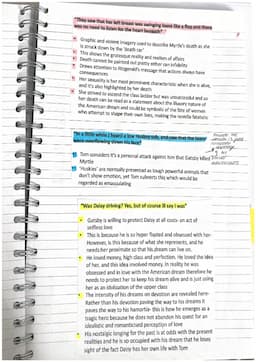 "They saw that her left breast was swinging loose like a flap and there
was no need to listen for the heart beneath"
Graphic and violent imagery used to describe Myrtle's death as she
is struck down by the 'death car'
This shows the gruesome reality and realism of affairs
Death cannot be painted out pretty either can infidelity
Draws attention to Fitzgerald's message that actions always have
consequences
Her sexuality is her most prominent characteristic when she is alive,
and it's also highlighted by her death
She strived to ascend the class ladder but was unsuccessful and so
her death can be read as a statement about the illusory nature of
the American dream and could be symbolic of the fate of women
who attempt to shape their own fates, making the novella fatalistic
"In a little while I heard a low husky sob, and saw that the tears
were overflowing down his face"
Tom considers it's a personal attack against him that Gatsby killed
Myrtle
'Huskies' are normally presented as tough powerful animals that
don't show emotion, yet Tom subverts this which would be
regarded as emasculating
"Was Daisy driving? Yes, but of course I'll say I was"
Gatsby is willing to protect Daisy at all costs- an act of
selfless love
This is because he is so hyper fixated and obsessed with her.
However, is this because of what she represents, and he
needs her proximate so that his dream can live on.
He loved money, high class and perfection. He loved the idea
of her, and this idea involved money. In reality he was
obsessed and in love with the American dream therefore he
needs to protect her to keep his dream alive and is just using
her as an idolisation of the upper class
The intensity of his dreams on devotion are revealed here-
Rather than his devotion paving the way to his dreams it
paves the way to his hamartia- this is how he emerges as a
tragic hero because he does not abandon his quest for an
idealistic and romanticised perception of love
His nostalgic longing for the past is at odds with the present
realities and he is so occupied with his dream that he loses
sight of the fact Daisy has her own life with Tom